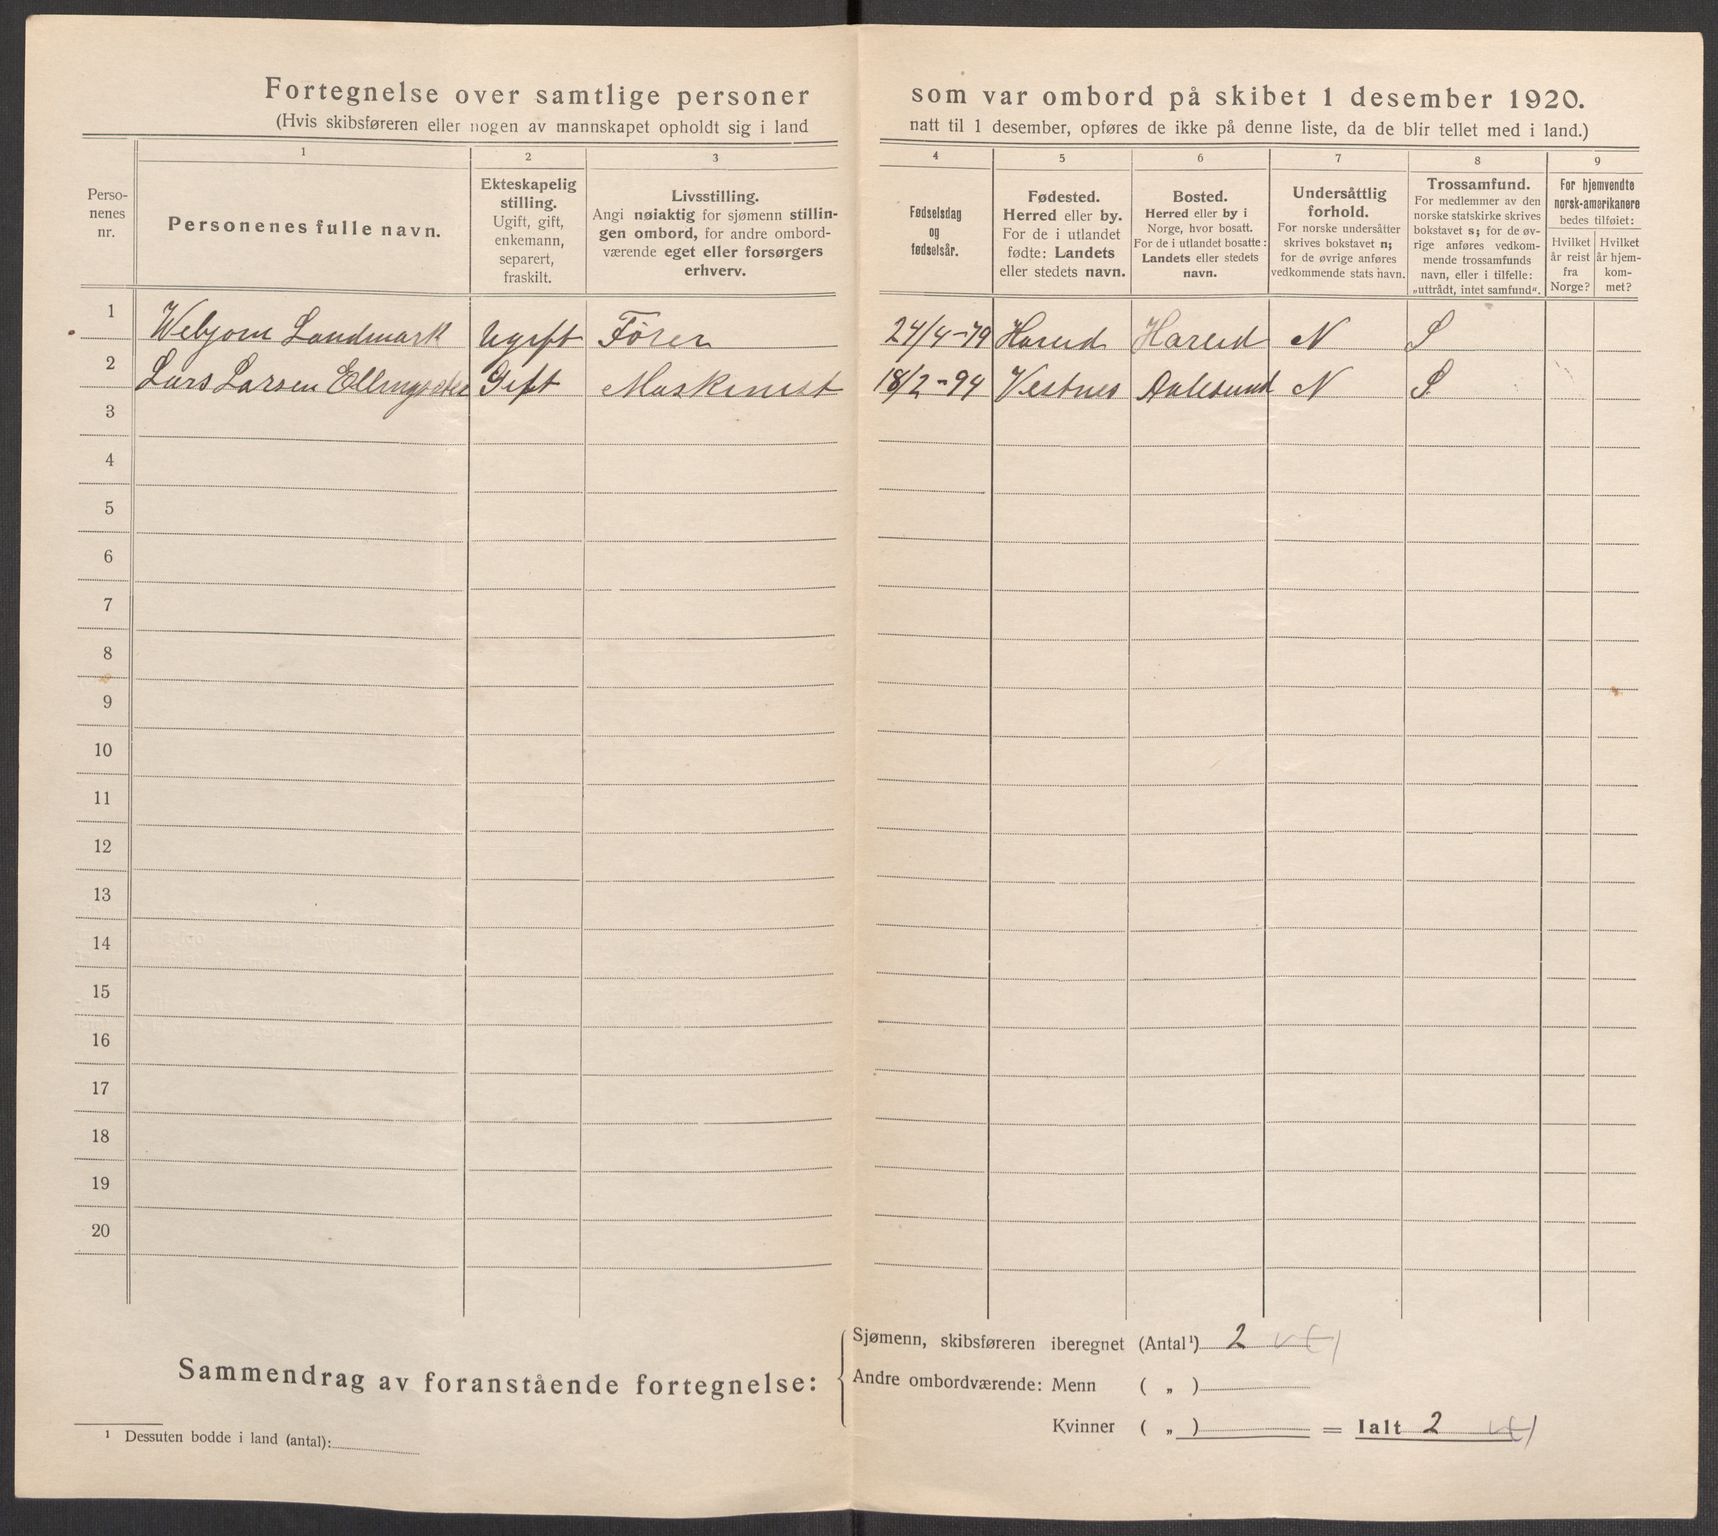 Fortegnelse over samtlige personer som var ombord på skibet 1 desember 1920.
(Hvis skibsføreren eller nogen av mannskapet opholdt sig i land natt til 1 desember, opføres de ikke på denne liste, da de blir tellet med i land.)
Personenes nr.
1 Personenes fulle navn.
2 Ekteskapelig stilling. Ugift, gift, enkemann, separert, fraskilt.
3 Livsstilling. Angi nøiaktig for sjømenn stillingen ombord, for andre ombordværende eget eller forsørgers erhverv.
4 Fødselsdag og fødselsår.
5 Fødested. Herred eller by. For de i utlandet fødte: Landets eller stedets navn.
6 Bosted. Herred eller by i Norge, hvor bosatt. For de i utlandet bosatte: Landets eller stedets navn.
7 Undersåttlig forhold. For norske undersåtter skrives bokstavet n; for de øvrige anføres vedkommende stats navn.
8 Trossamfund. For medlemmer av den norske statskirke skrives bokstavet s; for de øvrige anføres vedkommende trossamfunds navn, eller i tilfelle: „uttrådt, intet samfund".
9 For hjemvendte norsk-amerikanere bedes tilføiet: Hvilket år reist fra Norge? Hvilket år hjemkommet?
1 Webjørn Landmark Ugift Fører 24/4-79 Hareid Hareid N S
2 Lars Larsen Gift Maskinist 18/2-94 Vestnes Aalesund N S.
3
4
5
6
7
8
9
10
11
12
13
14
15
16
17
18
19
20
Sammendrag av foranstående fortegnelse:
Sjømenn, skibsføreren iberegnet (Antal¹) 2
Andre ombordværende: Menn ( „ )
Kvinner ( „ ) = Ialt 2
¹ Dessuten bodde i land (antal):